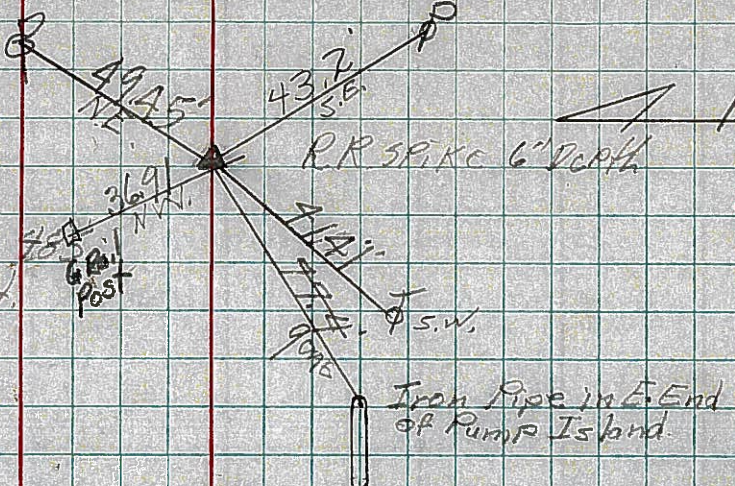 P
49.45
N.E.
43.2'
S.E.
R.R. SPIKE 6" Depth
36.9
N.W.
G Rail
Post
S.W.
GONE
Iron Pipe in E. End
of Pump Island